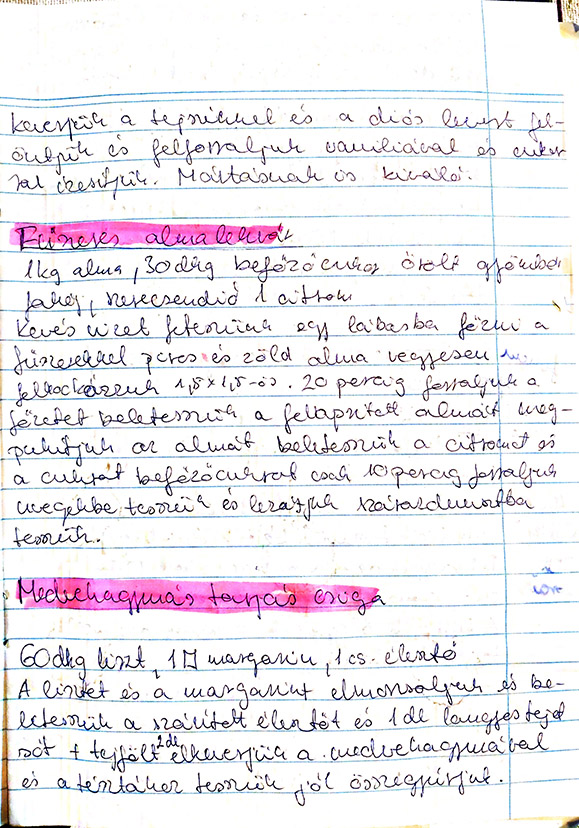 keverjük a tejszínnel és a diós levest fel-
öntjük és felforraljuk vaníliával és cukor
ral ízesítjük. Mártásnak is kiváló.
Fűszeres almalekvár
1kg alma, 30dkg befőzőcukor őrölt gyömbér
fahéj, szerecsendió 1 citrom
Kevés vizet feteszünk egy lábasba főzni a
fűszerekkel piros és zöld alma vegyesen
felkockázzuk 1,5 x 1,5-ös. 20 percig forraljuk a
főzetet beletesszük a felaprított almát meg-
puhítjuk az almát beletesszük a citromot és
a cukrot befőzőcukrot csak 10 percig forraljuk
üvegekbe tesszük és lezárjuk szárazdunsztba
tesszük.
Medvehagymás tarjás csiga
60dkg liszt, 1 margarin, 1 cs. élesztő
A lisztet és a margarint elmorzsoljuk és be-
letesszük a szárított élesztőt és 1 dl langyos tejet
sót + tejfölt 2dl elkeverjük a medvehagymával
és a tésztához tesszük jól összegyúrjuk.